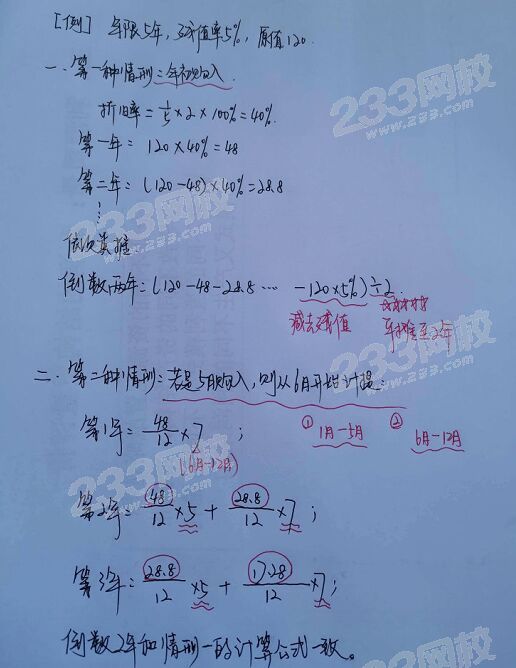 [例] 年限5年, 残值率5%, 原值120.
一、第一种情刑:年初购入.
折旧率=1/5×2×100%=40%.
第一年= 120×40%=48
第二年= (120-48)×40%=28.8
⋮
依次类推
倒数两年=(120-48-28.8 … -120×5%)÷2
减去残值
平摊至2年
二、第二种情刑:若是5月购入,则从6月开始计提:
① 1月-5月 ② 6月-12月
第1年= 48/12×7 ;
(6月-12月)
第2年= 48/12×5 + 28.8/12×7 ;
第3年= 28.8/12×5 + 17.28/12×7 ;
倒数2年和情刑一的计算公式一致。
233网校
www.233.com
233网校
www.233.com
233网校
www.233.com
233网校
www.233.com